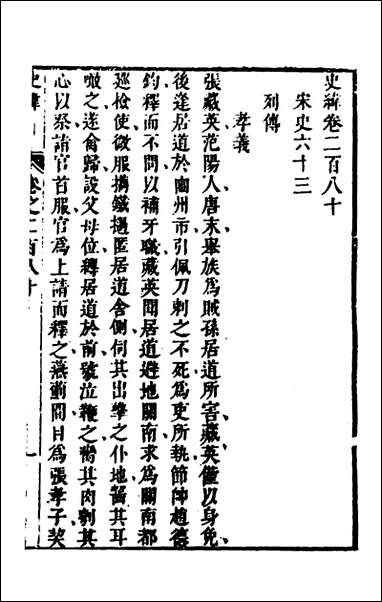 史緯卷二百八十
宋史六十三
列傳
孝義
張藏英范陽人唐末舉族爲賊孫居道所害藏英僅以身免
後逢居道於幽州市引佩刀刺之不死爲吏所執節帥趙德
鈞釋而不問以補牙職藏英聞居道避地關南求爲關南都
巡檢使微服攜鐵撾匿居道舍側伺其出擊之仆地齧其耳
噉之遂禽歸設父母位縛居道於前號泣鞭之臠其肉刳其
心以祭詣官首服官爲上請而釋之燕薊間目爲張孝子契
史緯 卷之二百八十